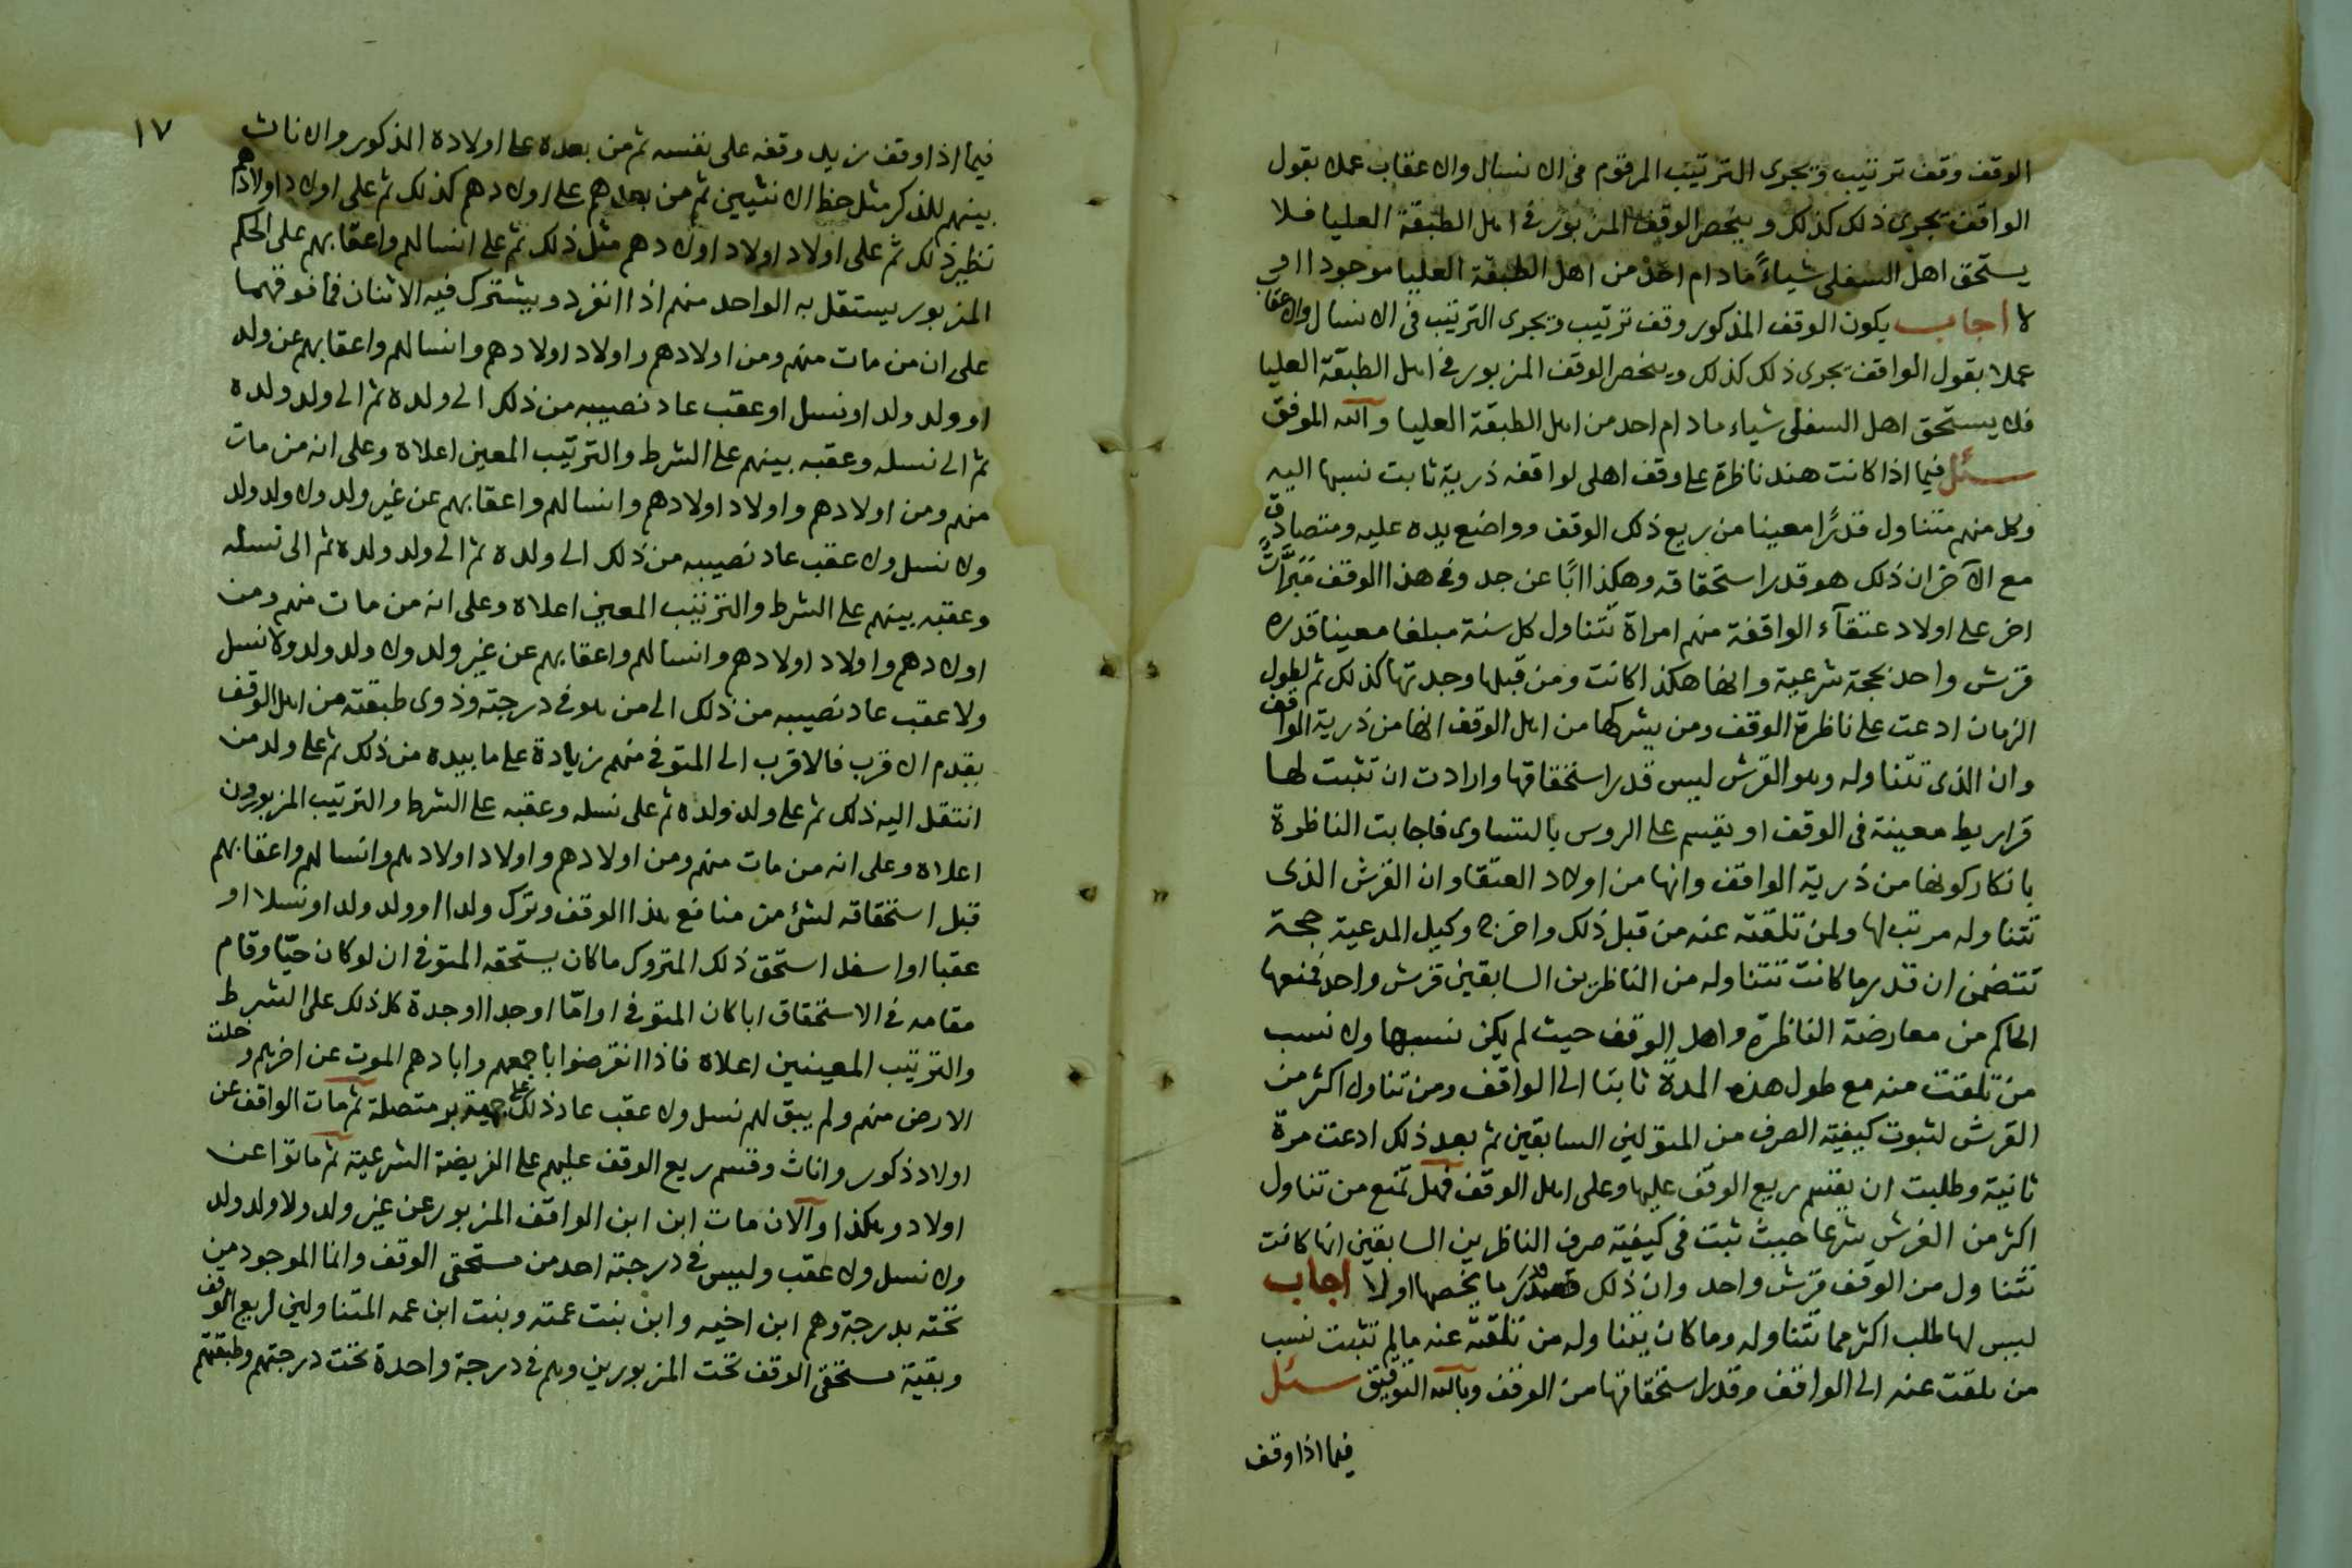 الوقف وقف ترتيب ويجرى الترتيب المرقوم فى الانسال والاعقاب عملا بقول
الواقف يجرى ذلك كذلك وينحصر الوقف المزبور فى اهل الطبقة العليا فلا
يستحق اهل السفلى شياءً مادام احد من اهل الطبقة العليا موجودا ام
لا اجاب يكون الوقف المذكور وقف ترتيب ويجرى الترتيب فى الانسال والاعقاب
عملا بقول الواقف يجرى ذلك كذلك وينحصر الوقف المزبور فى اهل الطبقة العليا
فلا يستحق اهل السفلى شياء مادام احد من اهل الطبقة العليا والله الموفق
سئل فيما اذا كانت هند ناظرة على وقف اهلى لواقفه ذرية ثابت نسبها اليه
وكل منهم متناول قدرًا معينا من ريع ذلك الوقف وواضع يده عليه ومتصادق
مع الآخر ان ذلك هو قدر استحقاقه وهكذا ابًا عن جد وفى هذا الوقف مَبَرَّات
اخر على اولاد عتقآء الواقفة منهم امراة تتناول كل سنة مبلغا معينا قدره
قرش واحد بحجة شرعية وانها هكذا كانت ومن قبلها وجدتها كذلك ثم لطول
الزمان ادعت على ناظرة الوقف ومن يشركها من اهل الوقف انها من ذرية الواقف
وان الذى تتناوله وهو القرش ليس قدر استحقاقها وارادت ان تثبت لها
قراريط معينة فى الوقف او يقسم على الروس بالتساوى فاجابت الناظرة
بانكار كونها من ذرية الواقف وانها من اولاد العتقا وان القرش الذى
تتناوله مرتب لها ولمن تلقته عنه من قبل ذلك واخرج وكيل المدعية حجة
تتضمن ان قدر ما كانت تتناوله من الناظرين السابقين قرش واحد فمنعها
الحاكم من معارضة الناظرة واهل الوقف حيث لم يكن نسبها ولا نسب
من تلقت منه مع طول هذه المدة ثابتا الى الواقف ومن تناول اكثر من
القرش لثبوت كيفية الصرف من المتولين السابقين ثم بعد ذلك ادعت مرة
ثانية وطلبت ان يقسم ريع الوقف عليها وعلى اهل الوقف فهل تمنع من تناول
اكثر من القرش شرعا حيث ثبت فى كيفية صرف الناظرين السابقين انها كانت
تتناول من الوقف قرش واحد وان ذلك قدر ما يخصها او لا اجاب
ليس لها طلب اكثر مما تتناوله وما كان يتناوله من تلقته عنه مالم تثبت نسب
من تلقت عنه الى الواقف وقدر استحقاقها من الوقف وبالله التوفيق سئل
فيما اذا وقف
١٧
فيما اذا وقف زيد وقفه على نفسه ثم من بعده على اولاده الذكور والاناث
بينهم للذكر مثل حظ الانثيين ثم من بعدهم على اولادهم كذلك ثم على اولاد اولادهم
نظير ذلك ثم على اولاد اولاد اولادهم مثل ذلك ثم على انسالهم واعقابهم على الحكم
المزبور يستقل به الواحد منهم اذا انفرد ويشترك فيه الاثنان فما فوقهما
على ان من مات منهم ومن اولادهم واولاد اولادهم وانسالهم واعقابهم عن ولد
او ولد ولد او نسل او عقب عاد نصيبه من ذلك الى ولده ثم الى ولد ولده
ثم الى نسله وعقبه بينهم على الشرط والترتيب المعين اعلاه وعلى انه من مات
منهم ومن اولادهم واولاد اولادهم وانسالهم واعقابهم عن غير ولد ولا ولد ولد
ولا نسل ولا عقب عاد نصيبه من ذلك الى ولده ثم الى ولد ولده ثم الى نسله
وعقبه بينهم على الشرط والترتيب المعين اعلاه وعلى انه من مات منهم ومن
اولادهم واولاد اولادهم وانسالهم واعقابهم عن غير ولد ولا ولد ولد ولا نسل
ولا عقب عاد نصيبه من ذلك الى من هو فى درجته وذوى طبقته من اهل الوقف
يقدم الاقرب فالاقرب الى المتوفى منهم زيادة على ما بيده من ذلك ثم على ولد من
انتقل اليه ذلك ثم على ولد ولده ثم على نسله وعقبه على الشرط والترتيب المزبورين
اعلاه وعلى انه من مات منهم ومن اولادهم واولاد اولادهم وانسالهم واعقابهم
قبل استحقاقه لشئ من منافع هذا الوقف وترك ولدا او ولد ولد او نسلا او
عقبا او اسفل استحق ذلك المتروك ما كان يستحقه المتوفى ان لو كان حيّا وقام
مقامه فى الاستحقاق ابا كان المتوفى او امّا او جدا او جدة كل ذلك على الشرط
والترتيب المعينين اعلاه فاذا انقرضوا باجمعهم وابادهم الموت عن اخرهم وخلت
الارض منهم ولم يبق لهم نسل ولا عقب عاد ذلك على جهة بر متصلة ثم مات الواقف عن
اولاد ذكور واناث وقسم ريع الوقف عليهم على الفريضة الشرعية ثم ماتوا عن
اولاد وهكذا والآن مات ابن ابن الواقف المزبور عن غير ولد ولا ولد ولد
ولا نسل ولا عقب وليس فى درجته احد من مستحقى الوقف وانما الموجود من
تحته بدرجة وهم ابن اخيه وابن بنت عمته وبنت ابن عمه المتناولين لريع الوقف
وبقية مستحقى الوقف تحت المزبورين وهم فى درجة واحدة تحت درجتهم وطبقتهم